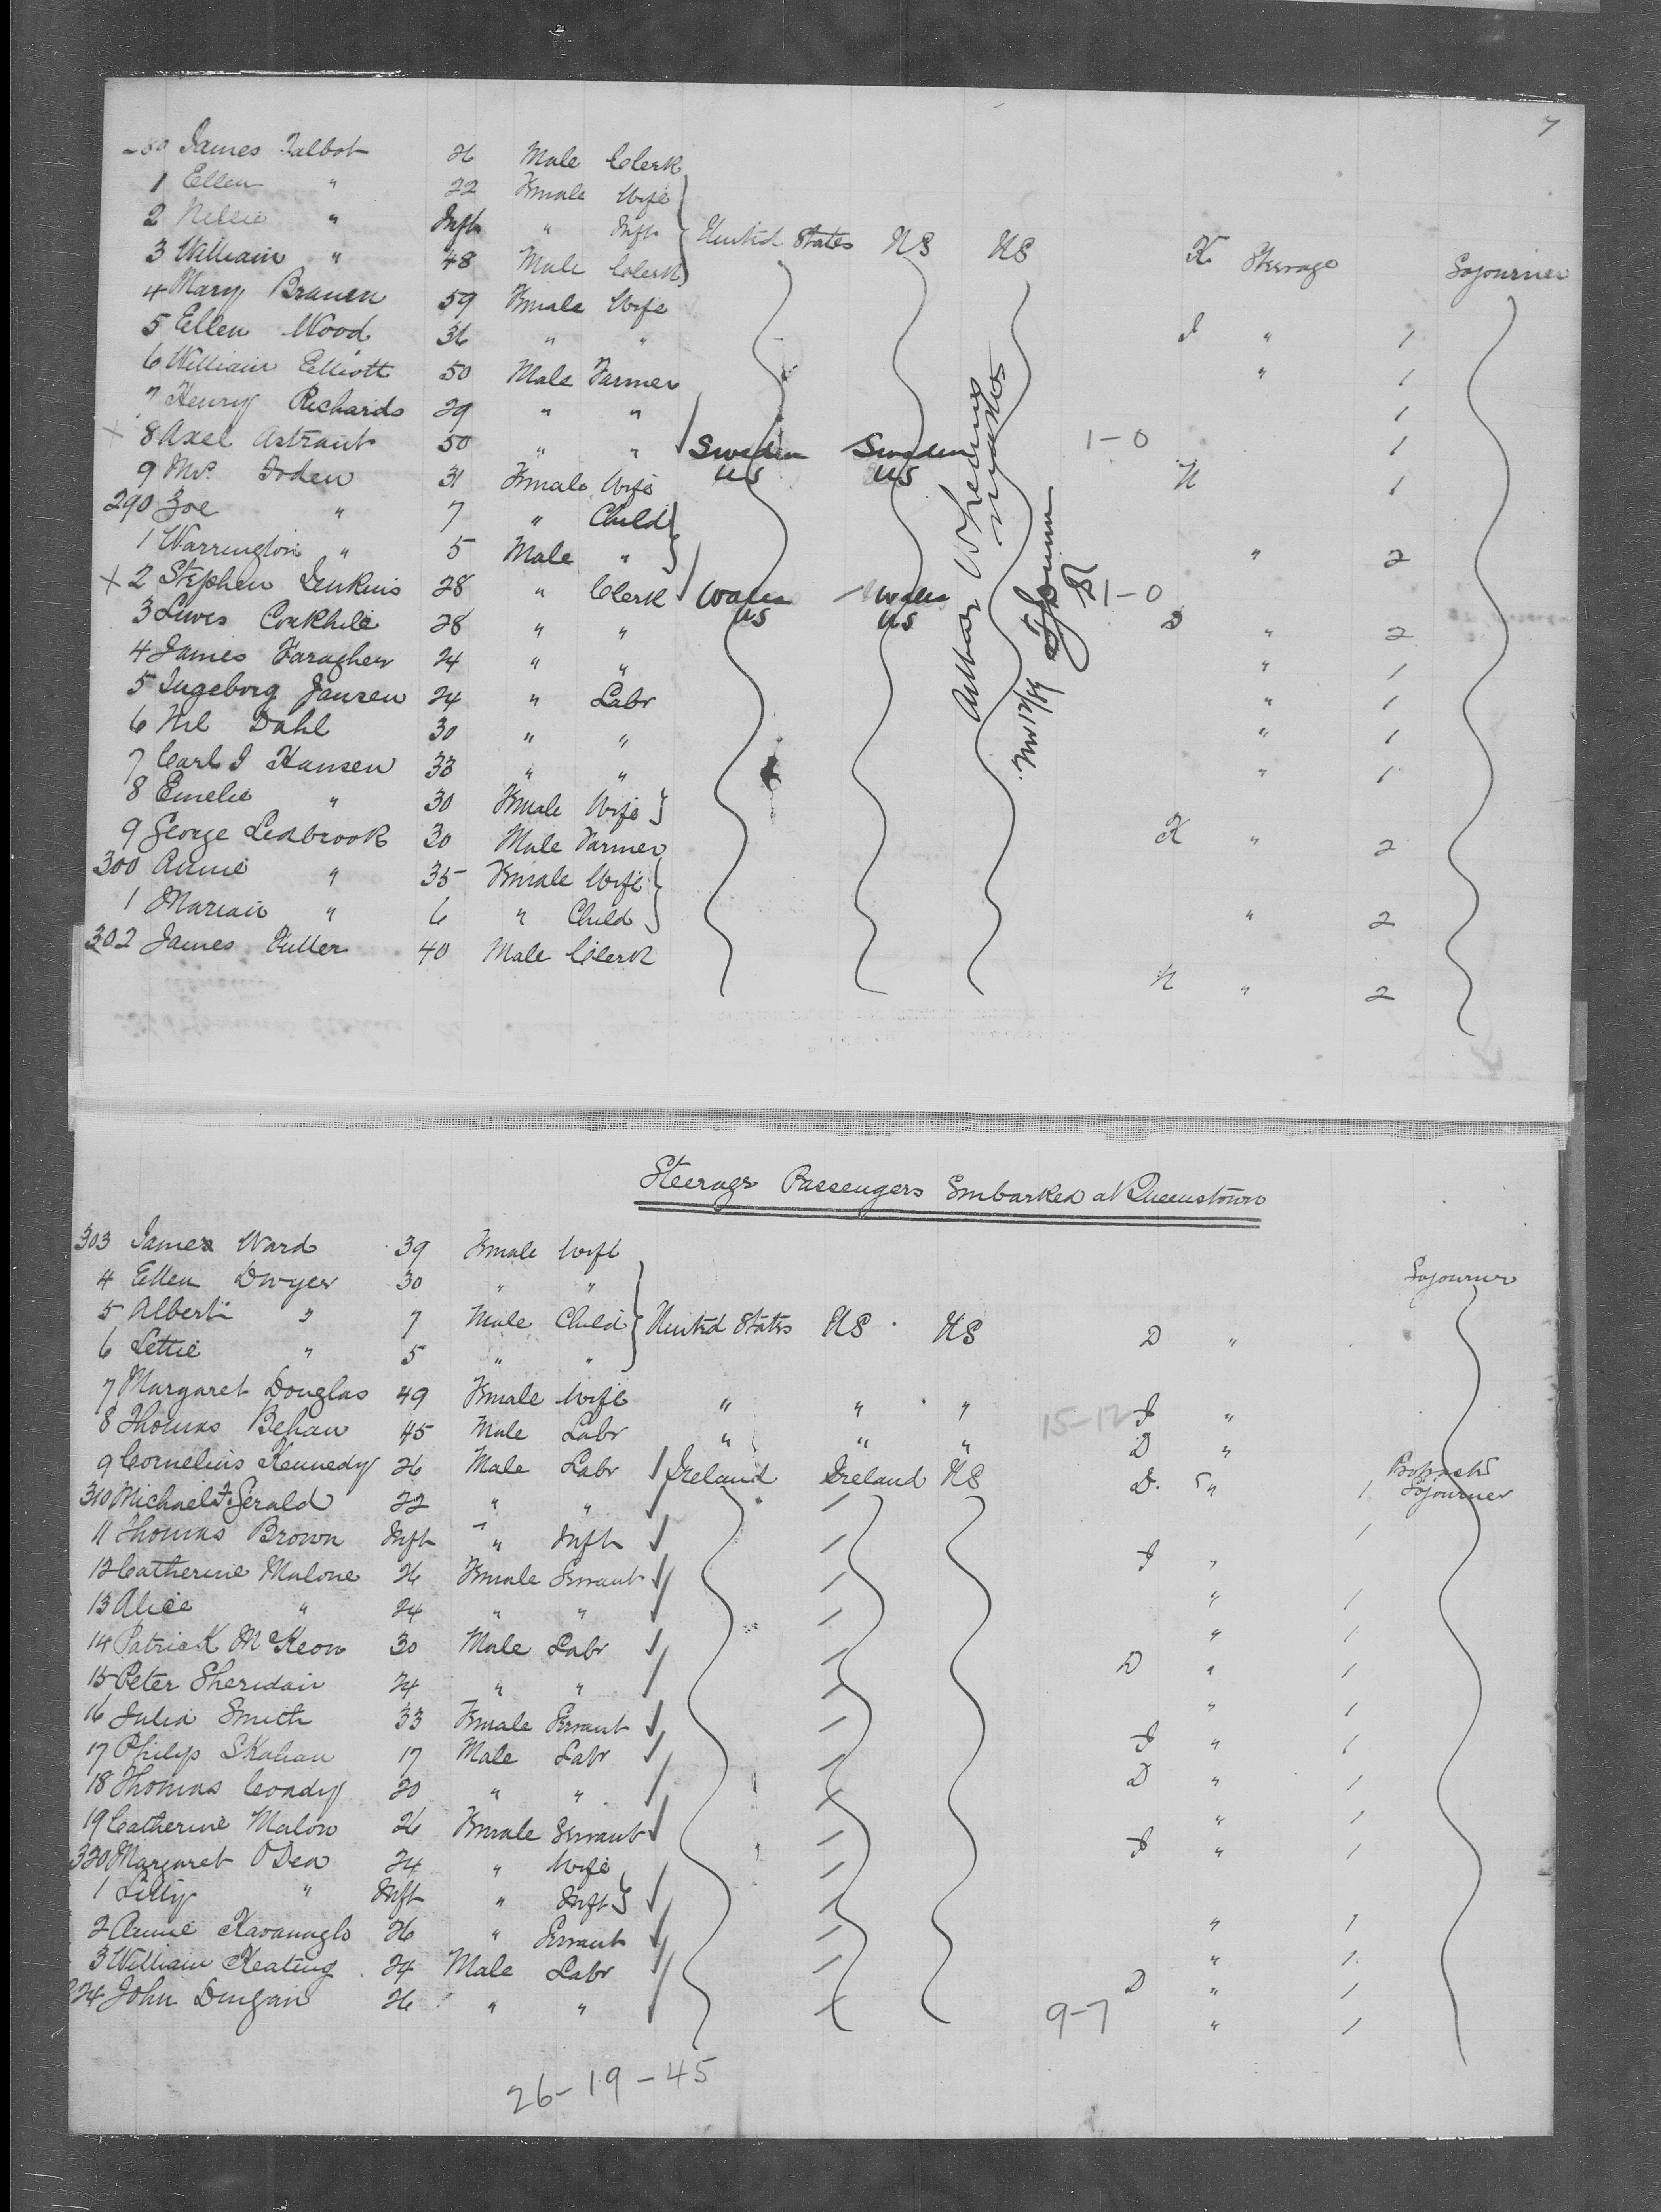 7
280 James Talbot 26 Male Clerk
1 Ellen " 22 Female Wife
2 Nellie " Inft " Inft United States US US K Steerage Sojourner
3 William " 48 Male Clerk
4 Mary Brauen 59 Female Wife
5 Ellen Wood 36 " " " 1
6 William Elliott 50 Male Farmer " 1
7 Henry Richards 29 " " 1
X 8 Axel Astraut 50 " " / Sweden Sweden 1-0 1
9 Mrs. Ioden 31 Female Wife US US N 1
290 Zoe " 7 " Child
1 Warrington " 5 Male " " 2
X 2 Stephen Jenkins 28 " Clerk / Wales Wales 1-0
3 Lewis Corkhill 28 " " US US " 2
4 James Faragher 24 " " " 1
5 Ingeborg Jansen 24 " Labr " 1
6 Nil Dahl 30 " " " 1
7 Carl J Hansen 33 " " " 1
8 Emelie " 30 Female Wife
9 George Ledbrook 30 Male Farmer K " 2
300 Annie " 35 Female Wife
1 Mariain " 6 " Child " 2
302 James Fuller 40 Male Clerk
N " 2
Steerage Passengers Embarked at Queenstown
303 James Ward 39 Female Wife
4 Ellen Dwyer 30 " " Sojourner
5 Albert " 7 Male Child United States US US D "
6 Lettie " 5 " "
7 Margaret Douglas 49 Female Wife " " " 15-12 "
8 Thomas Behan 45 Male Labr " " " D "
9 Cornelius Kennedy 26 Male Labr / Ireland Ireland US D " 1 Sojourner
310 Michael F.Gerald 22 " " / 1
11 Thomas Brown Inft " Inft "
12 Catherine Malone 26 Female Servant " 1
13 Alice " 24 " " " 1
14 Patrick McKeon 30 Male Labr D " 1
15 Peter Sheridan 24 " " " 1
16 Julia Smith 33 Female Servant " 1
17 Philip Skahan 17 Male Labr D " 1
18 Thomas Coady 20 " " " 1
19 Catherine Malon 26 Female Servant " 1
320 Margaret ODea 24 " Wife
1 Lilly " Inft " Inft " 1
2 Annie Kavanagh 26 " Servant " 1
3 William Keating 24 Male Labr D " 1
324 John Dungan 26 " " 9-7 " 1
26-19-45